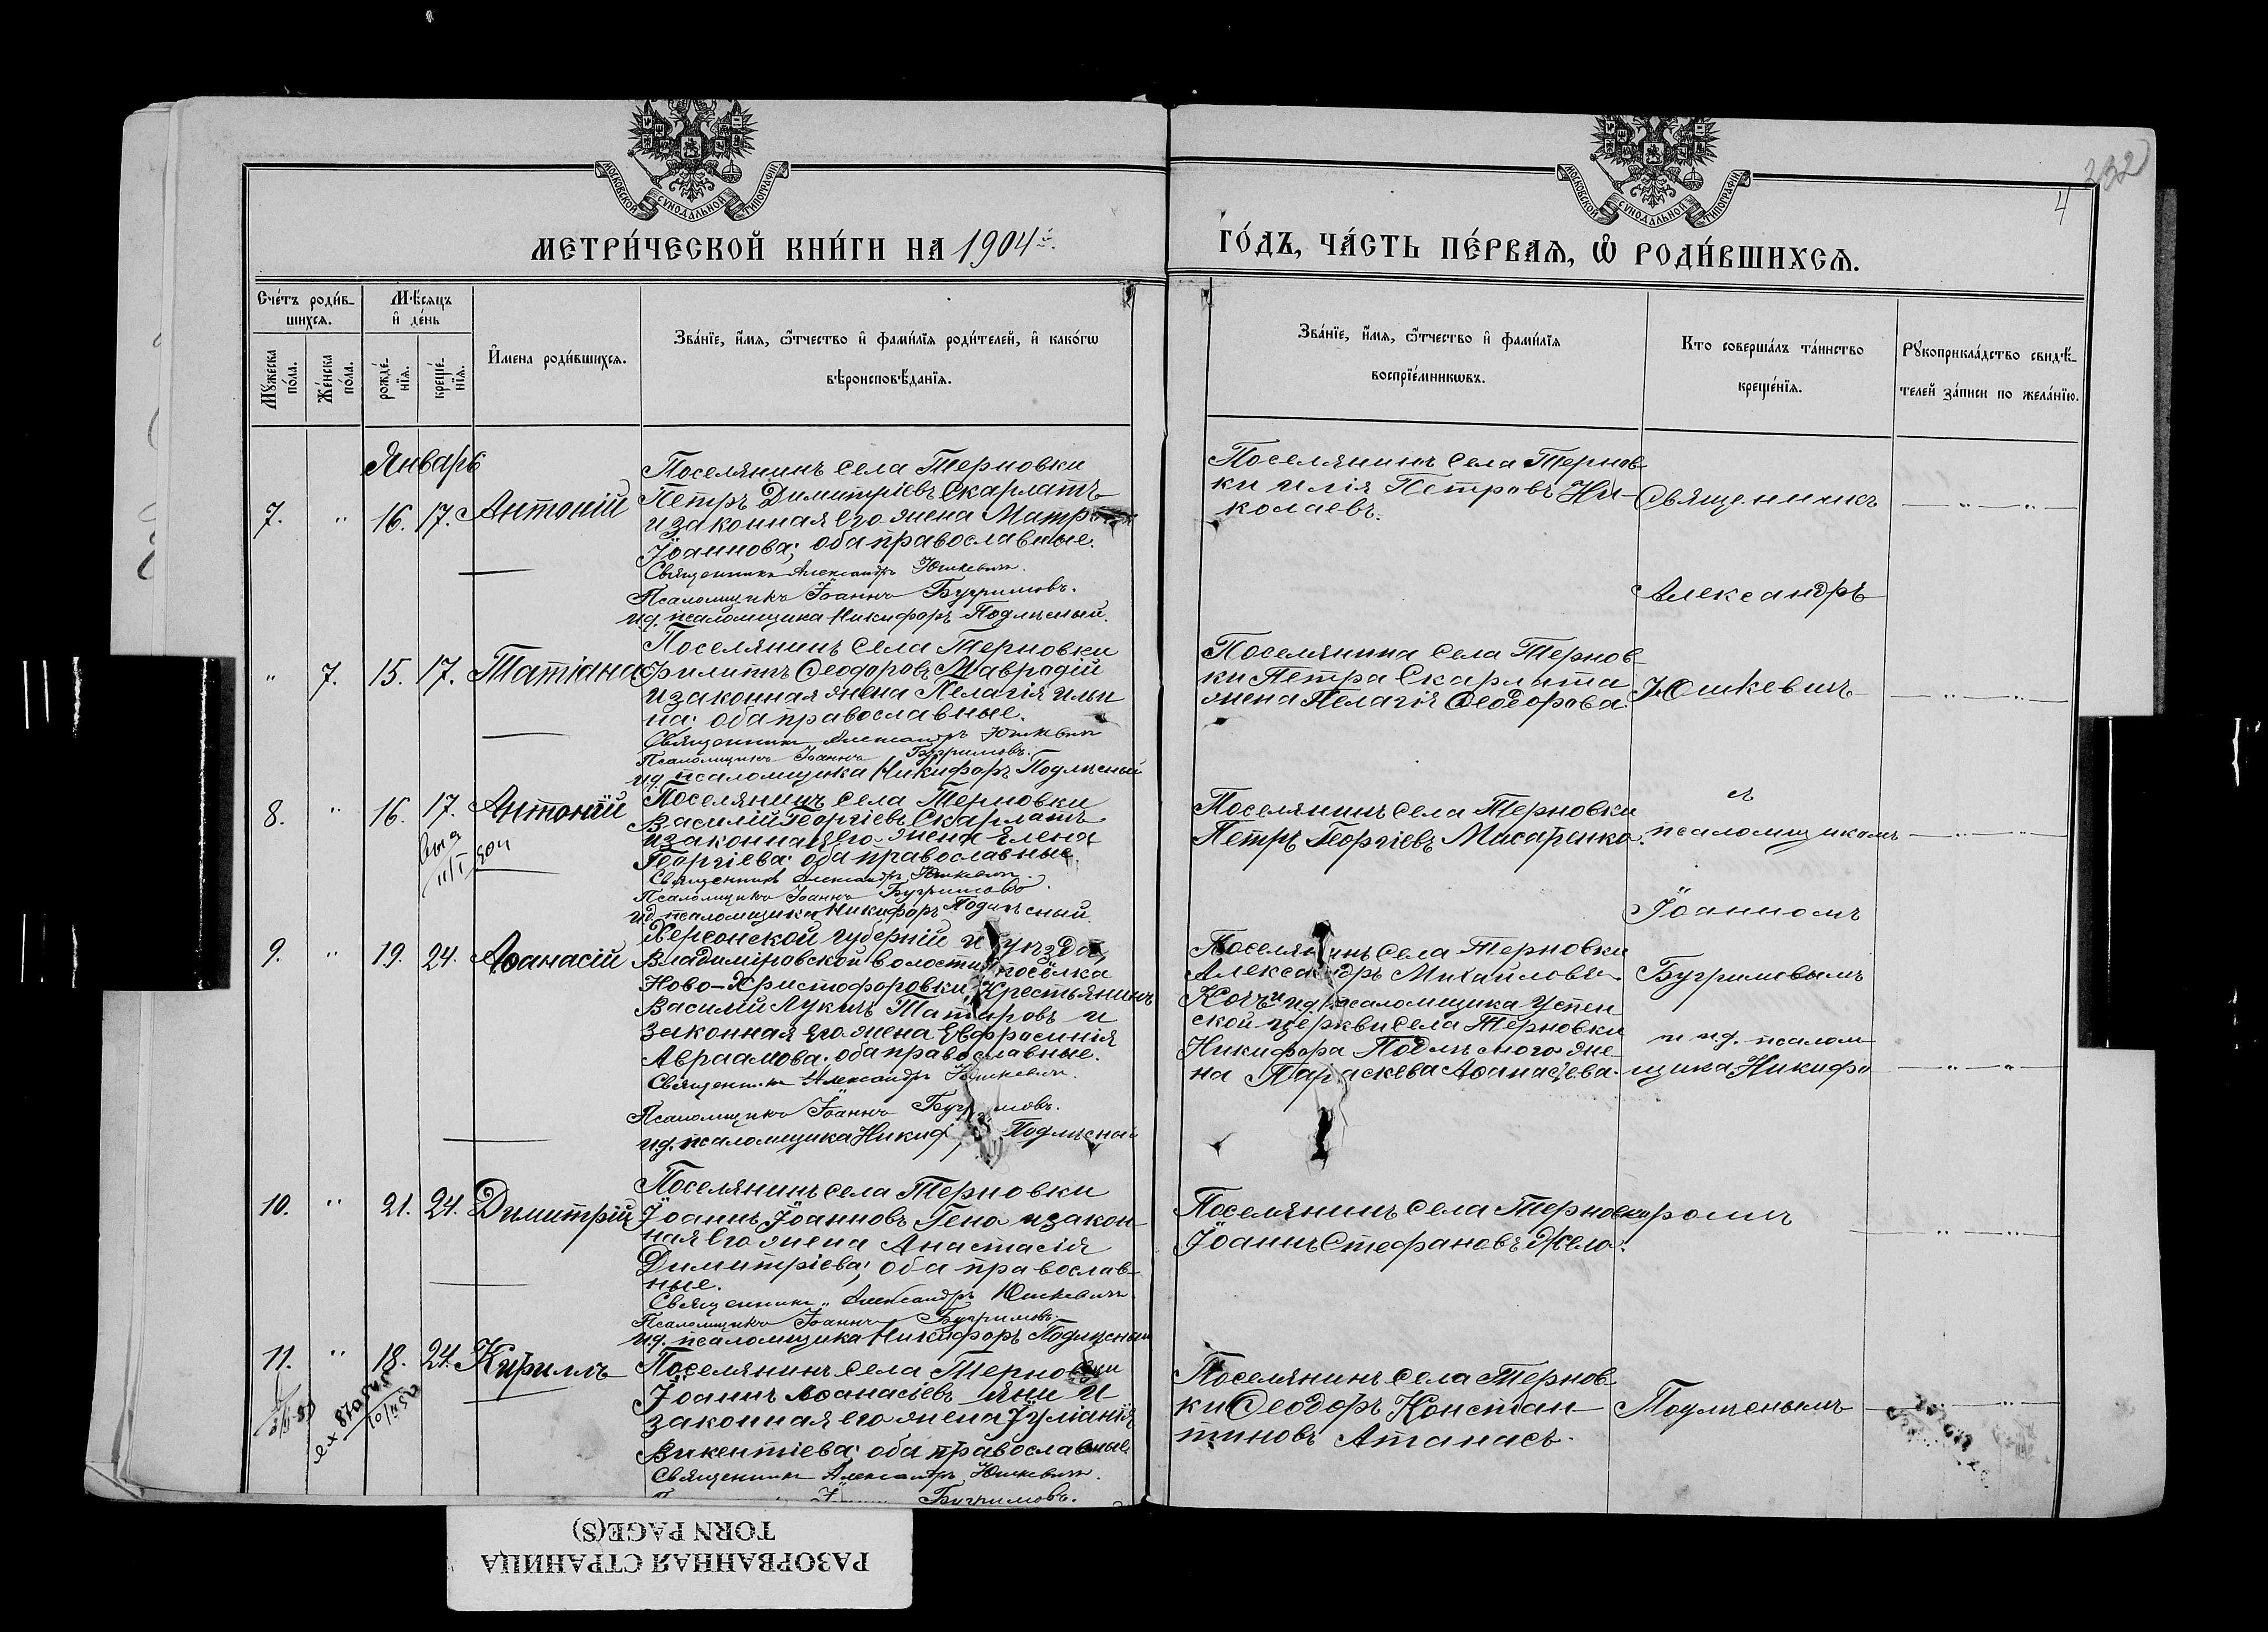 332
4
МОСКОВСКОЙ СѴНОДАЛЬНОЙ ТИПОГРАФІИ
МОСКОВСКОЙ СѴНОДАЛЬНОЙ ТИПОГРАФІИ
МЕТРИ́ЧЕСКОЙ КНИ́ГИ НА 1904й.
ГО́ДЪ, ЧА́СТЬ ПЕ́РВАѦ, Ѡ҆ РОДИ́ВШИХСѦ.
Сче́тъ роди́в-
шихсѧ.
Мꙋ́жеска по́ла.
Же́нска по́ла.
Мѣ́сѧцъ
и҆ де́нь
рожде́-
нїѧ.
креще́-
нїѧ.
И҆мена роди́вшихсѧ.
Зва́нїе, и҆́мѧ, ѻ҆́тчество и҆ фами́лїѧ роди́телей, и҆ како́гѡ
вѣроисповѣ́данїѧ.
Зва́нїе, и҆́мѧ, ѻ҆́тчество и҆ фами́лїѧ
воспрїе́мникѡвъ.
Кто соверша́лъ та́инство
креще́нїѧ.
Рꙋкоприкла́дство свидѣ́-
телей за́писи по жела́нїю.
Январь
7. " 16. 17. Антоній
Поселянинъ села Терновки
Петръ Димитріевъ Скарлатъ
и законная его жена Матро
Іоаннова; оба православные.
Священникъ Александръ Юшкевичъ.
Псаломщикъ Іоаннъ Бугримовъ.
и.д. псаломщика Никифоръ Подлѣсный.
Поселянинъ села Тернов-
ки Илія Петровъ Ни-
колаевъ.
Священникъ
Александръ
" 7. 15. 17. Татіана
Поселянинъ села Терновки
Филиппъ Ѳеодоровъ Мавродій
и законная жена Пелагія Ильи
на; оба православные.
Священникъ Александръ Юшкевичъ
Псаломщикъ Іоаннъ Бугримовъ.
и.д. псаломщика Никифоръ Подлѣсный
Поселянина села Тернов-
ки Петра Скарлата
жена Пелагія Ѳеодорова.
Юшкевичъ
8. " 16. 17. Антоній
Поселянинъ села Терновки
Василій Георгіевъ Скарлатъ
и законная его жена Елена
Георгіева; оба православные.
Священникъ Александръ Юшкевичъ.
Псаломщикъ Іоаннъ Бугримовъ.
и.д. псаломщика Никифоръ Подлѣсный
Поселянинъ села Терновки
Петръ Георгіевъ
съ
псаломщикомъ
Іоанномъ
9. " 19. 24. Аѳанасій
Херсонской губерніи и уѣзда,
Владиміровской волости посёлка
Ново-Христофоровки, Крестьянинъ
Василій Лукичъ Татаровъ и
законная его жена Евфросинія
Авраамова; оба православные.
Священникъ Александръ Юшкевичъ.
Псаломщикъ Іоаннъ Бугримовъ.
и.д. псаломщика Никиф Подлѣсный
Поселянинъ села Терновки
Александръ Михайловъ
и и.д. псаломщика Успен
ской церкви села Терновки
Никифора Подлѣснаго же-
на Параскева Аѳанасьева.
Бугримовымъ
и и.д. псалом-
щика Никифо
10. " 21. 24. Димитрій
Поселянинъ села Терновки
Іоаннъ Іоанновъ Гено и закон-
ная его жена Анастасія
Димитріева; оба православ-
ные.
Священникъ Александръ Юшкевичъ
Псаломщикъ Іоаннъ Бугримовъ.
и.д. псаломщика Никифоръ Подлѣсный
Поселянинъ села Терновки
Іоаннъ Стефановъ Жело.
ромъ
11. " 18. 24. Кириллъ
Поселянинъ села Терновки
Іоаннъ Аѳанасьевъ Яни и
законная его жена Іуліанія
Викентіева; оба православные
Священникъ Александръ Юшкевичъ.
Бугримовъ.
Поселянинъ села Тернов-
ки Ѳеодоръ Констан-
тиновъ Атанасъ.
Подлѣснымъ
РАЗОРВАННАЯ СТРАНИЦА
TORN PAGE(S)